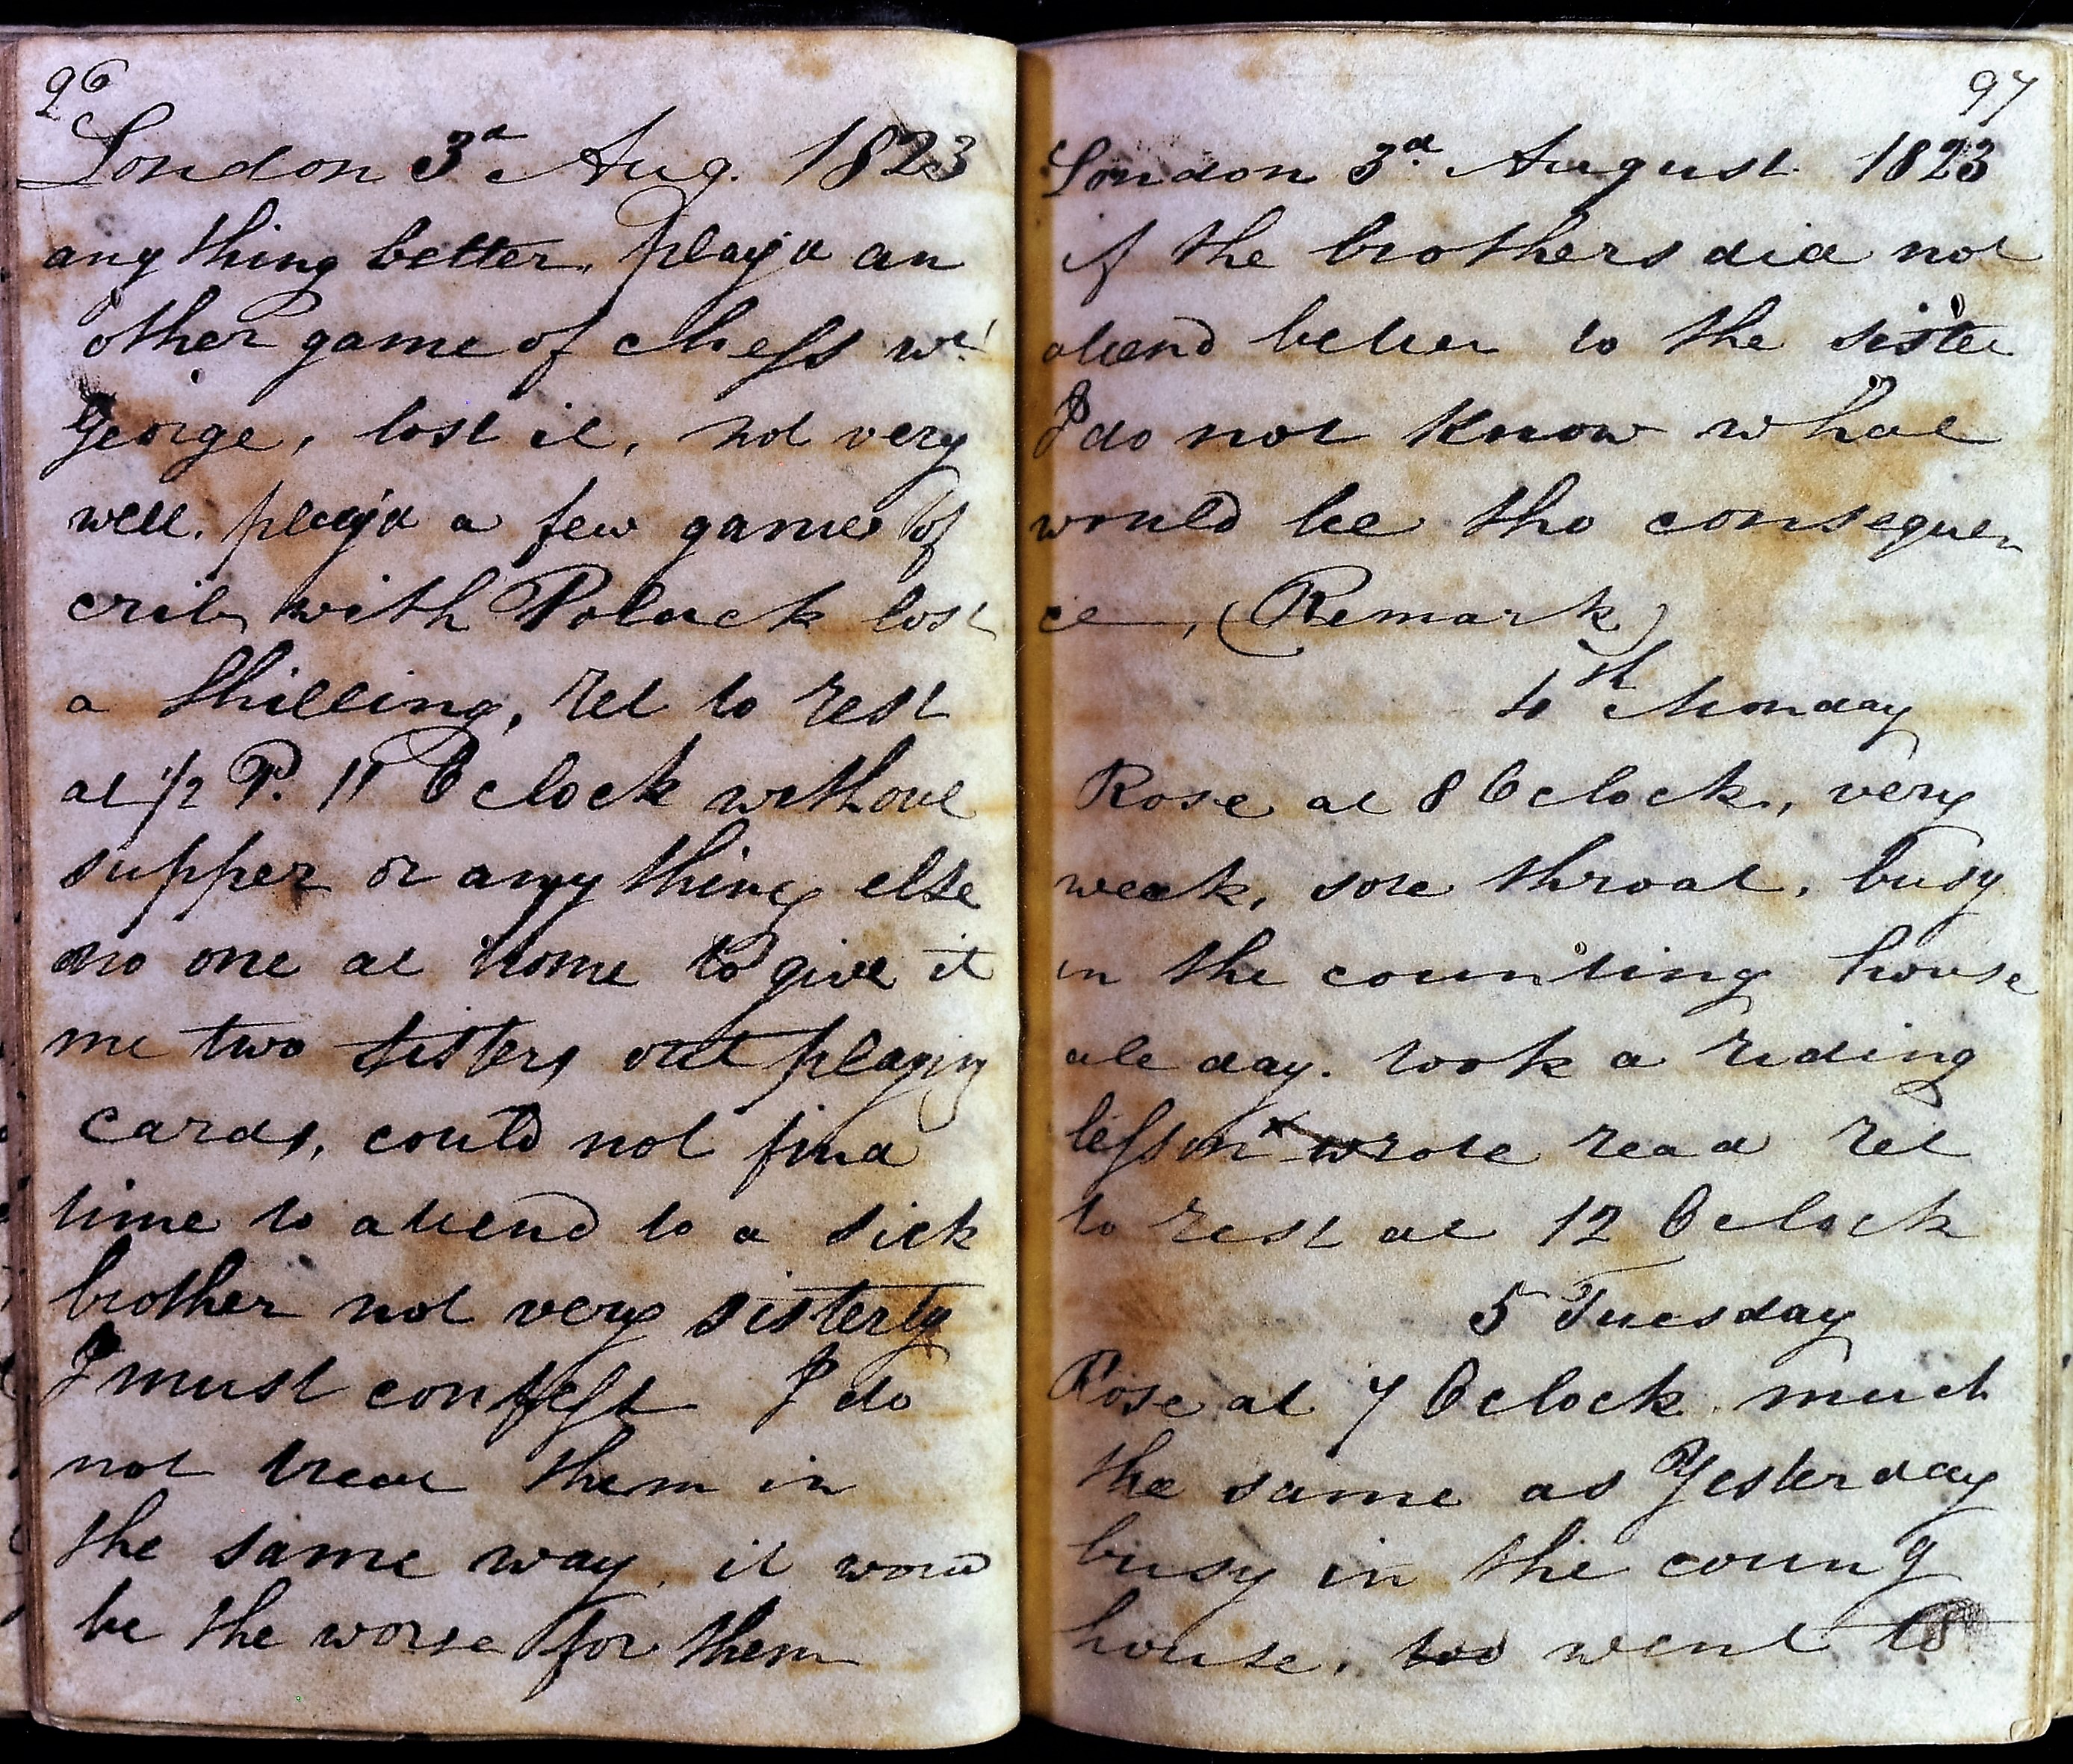 96
London 3d Aug. 1823
any thing better, play'd an
other game of chess wt
George, lost it, not very
well. play'd a few games of
crib with Polack lost
a shilling, ret to rest
at 1/2 P. 11 O clock without
supper or any thing else
no one at home to give it
me two sisters out playing
cards, could not find
time to attend to a sick
brother not very sisterly
I must confess I do
not treat them in
the same way, it woud
be the worse for them
97
London 3d August 1823
if the brothers did not
attend better to the sister
I do not know what
would be the consequen
ce, (Remark)
4th Monday
Rose at 8 O clock, very
weak, sore throat, busy
in the counting house
all day. took a riding
lesson x wrote read ret
to rest at 12 O clock
5 Tuesday
Rose at 7 O clock much
the same as Yesterday
busy in the coung
house, went to